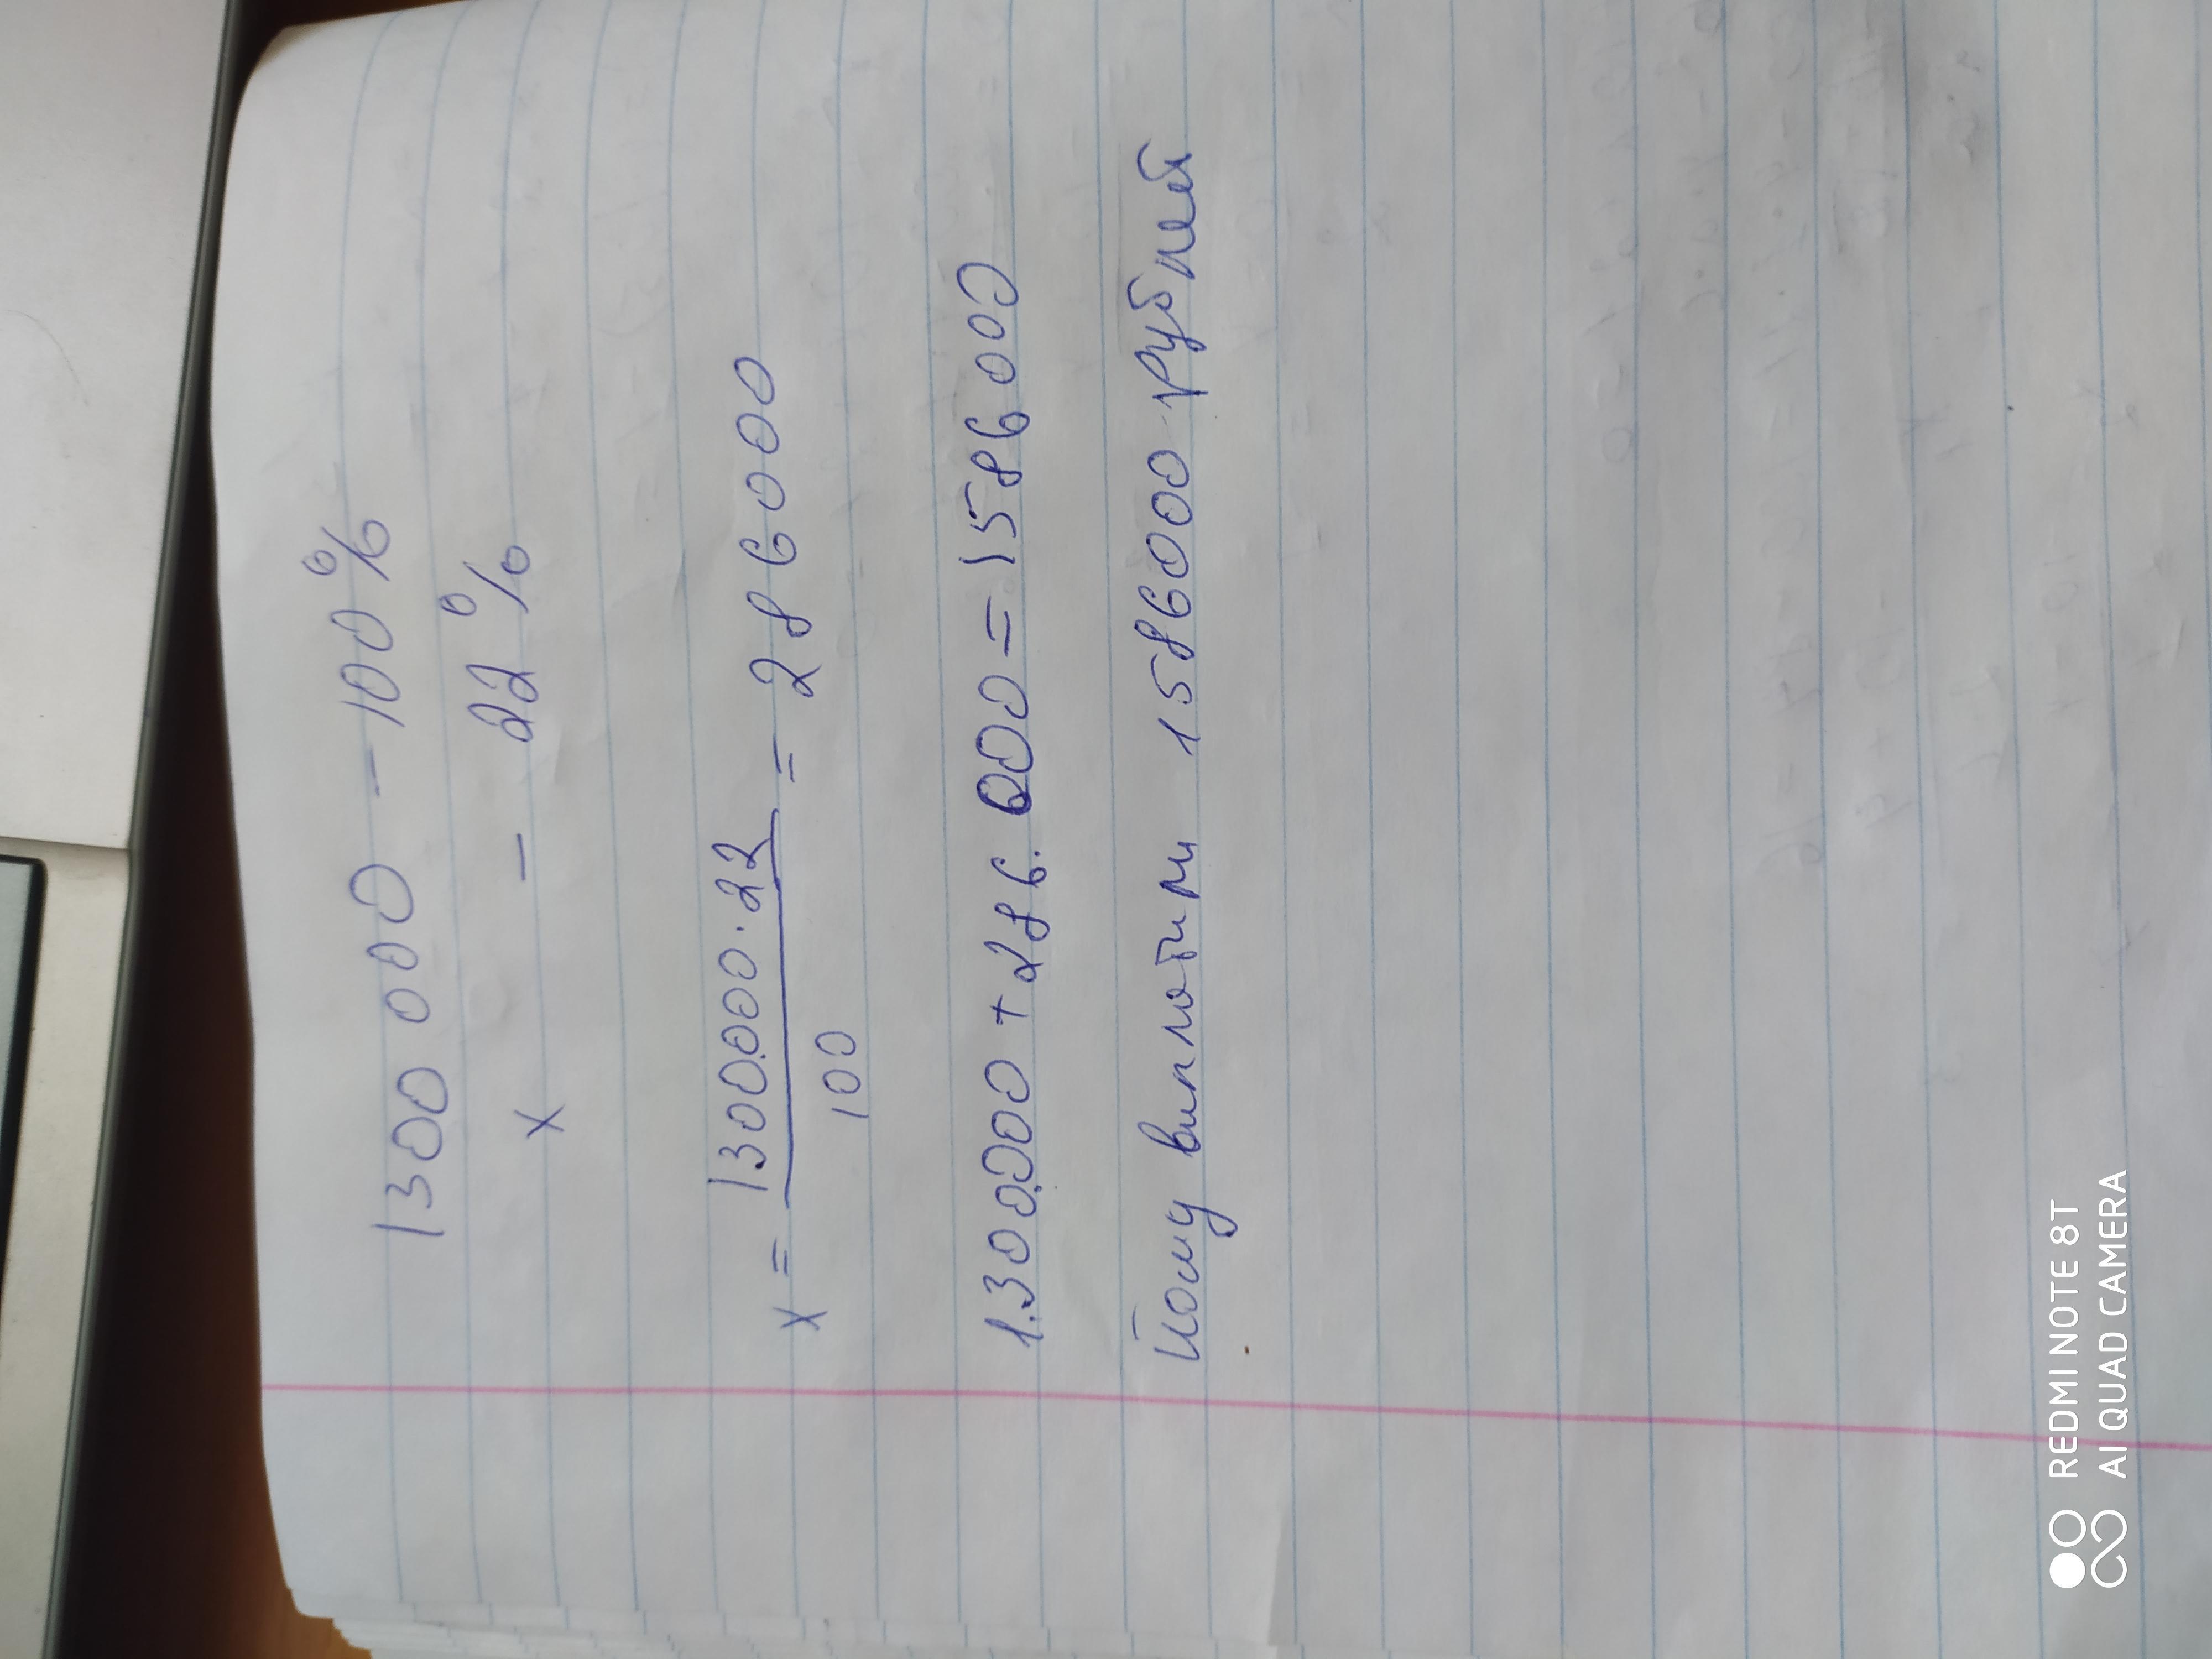 1300 000 - 100%
x - 22%
x = 1300.000·22 / 100 = 286000
1.300.000 + 286.000 = 1586 000
Йому виплотим 1586000 рублей
REDMI NOTE 8T
AI QUAD CAMERA